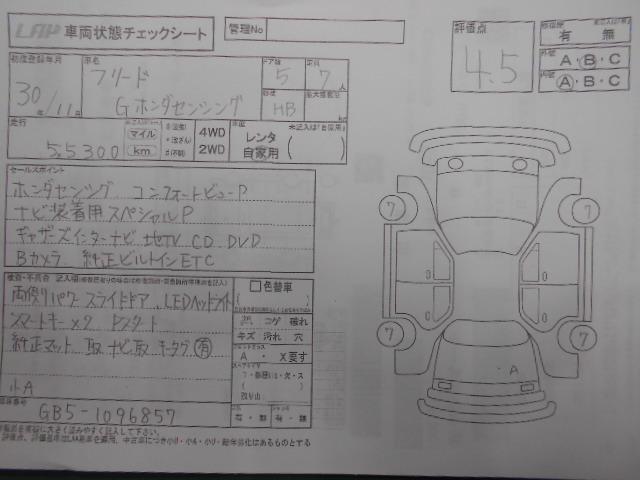 LAP 車両状態チェックシート 管理No
評価点 4.5
修復歴 有 無
外装 A・B・C
内装 A・B・C
初度登録年月 30年/11月
車名 フリード
Gホンダセンシング
ドア数 5 定員 7人
形状 HB 最大積載量 kg
走行 55300 マイル km
4WD
2WD
車歴 レンタ
自家用
未記入は「自家用」
セールスポイント
ホンダセンシング コンフォートビューP
ナビ装着用スペシャルP
ギャザーズインターナビ 地TV CD DVD
Bカメラ 純正ビルトインETC
両側パワースライドドア LEDヘッドライト
スマートキー×2 Pスタート
純正マット 取 ナビ取 キータグ有
小A
色替車
コゲ 破れ
キズ 汚れ 穴
A・X要す
有・無 有・無
車台番号 GB5-1096857
7 7
7 7
A